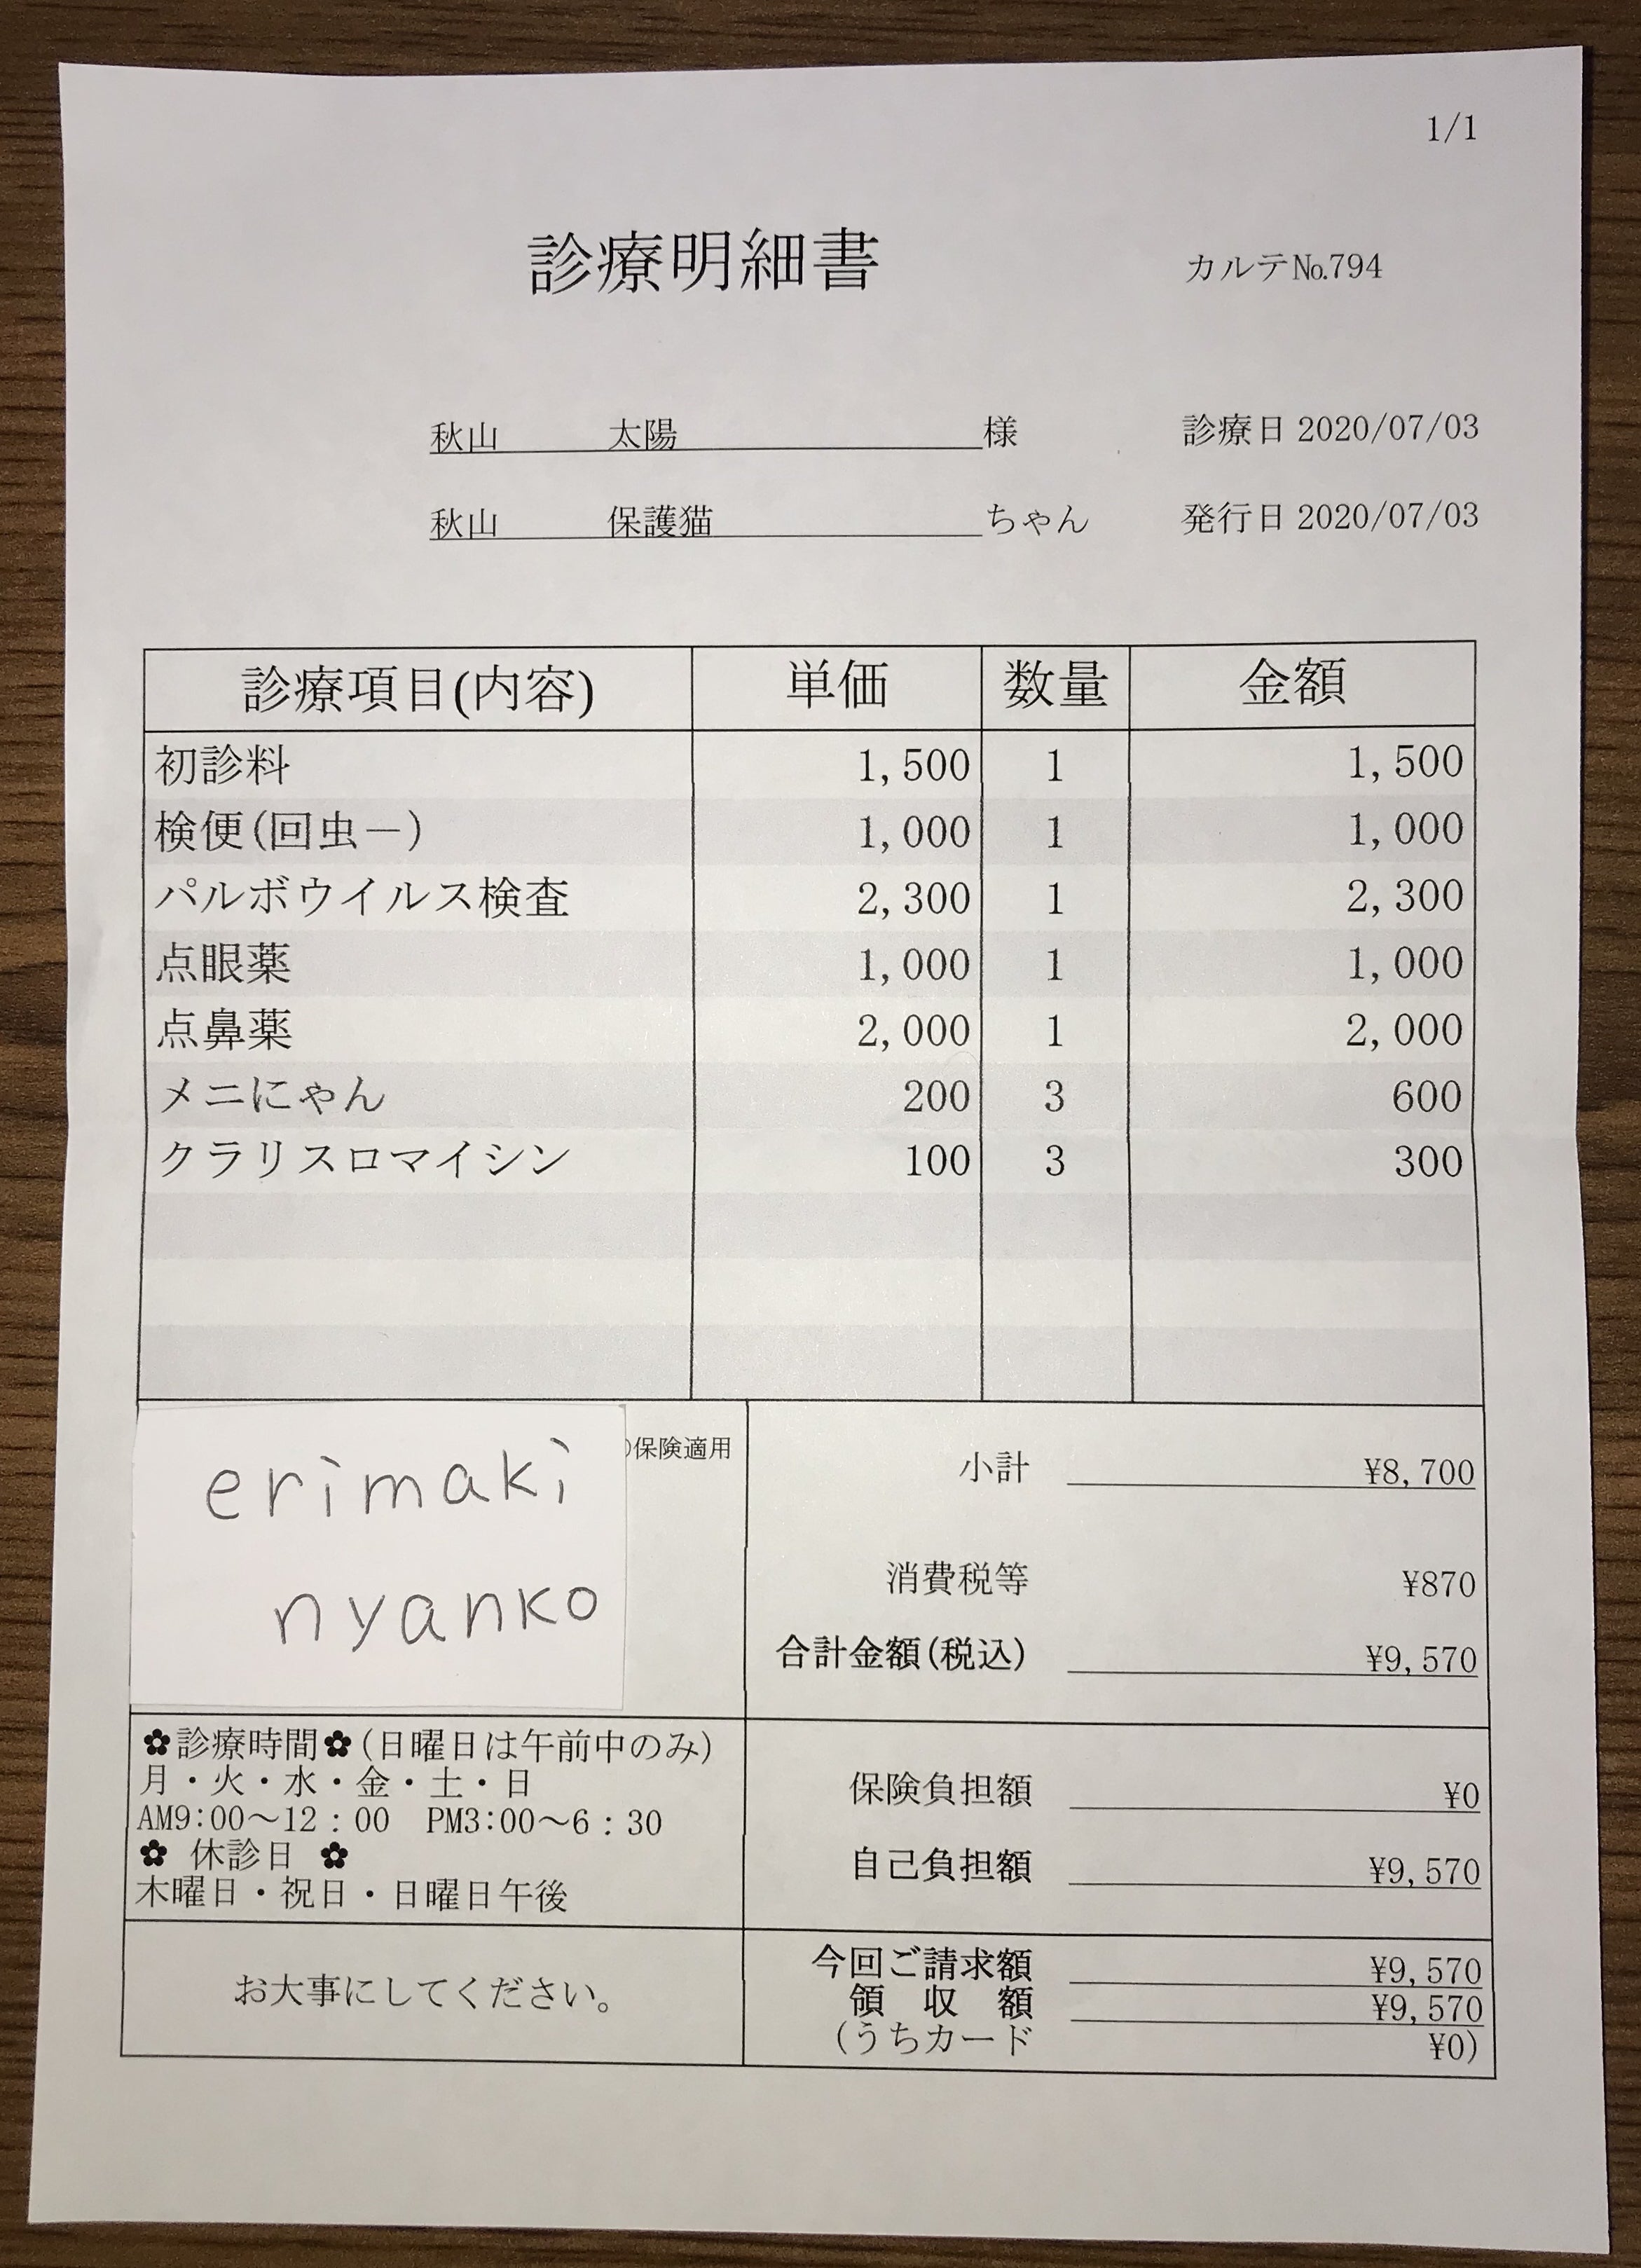 1/1
診療明細書 カルテ№794
秋山 太陽 様 診療日 2020/07/03
秋山 保護猫 ちゃん 発行日 2020/07/03
診療項目(内容) 単価 数量 金額
初診料 1,500 1 1,500
検便(回虫－) 1,000 1 1,000
パルボウイルス検査 2,300 1 2,300
点眼薬 1,000 1 1,000
点鼻薬 2,000 1 2,000
メニにゃん 200 3 600
クラリスロマイシン 100 3 300
保険適用
erimaki
nyanko
小計 ¥8,700
消費税等 ¥870
合計金額(税込) ¥9,570
✿診療時間✿(日曜日は午前中のみ)
月・火・水・金・土・日
AM9:00～12：00 PM3:00～6：30
✿ 休診日 ✿
木曜日・祝日・日曜日午後
保険負担額 ¥0
自己負担額 ¥9,570
お大事にしてください。
今回ご請求額 ¥9,570
領 収 額 ¥9,570
(うちカード ¥0)